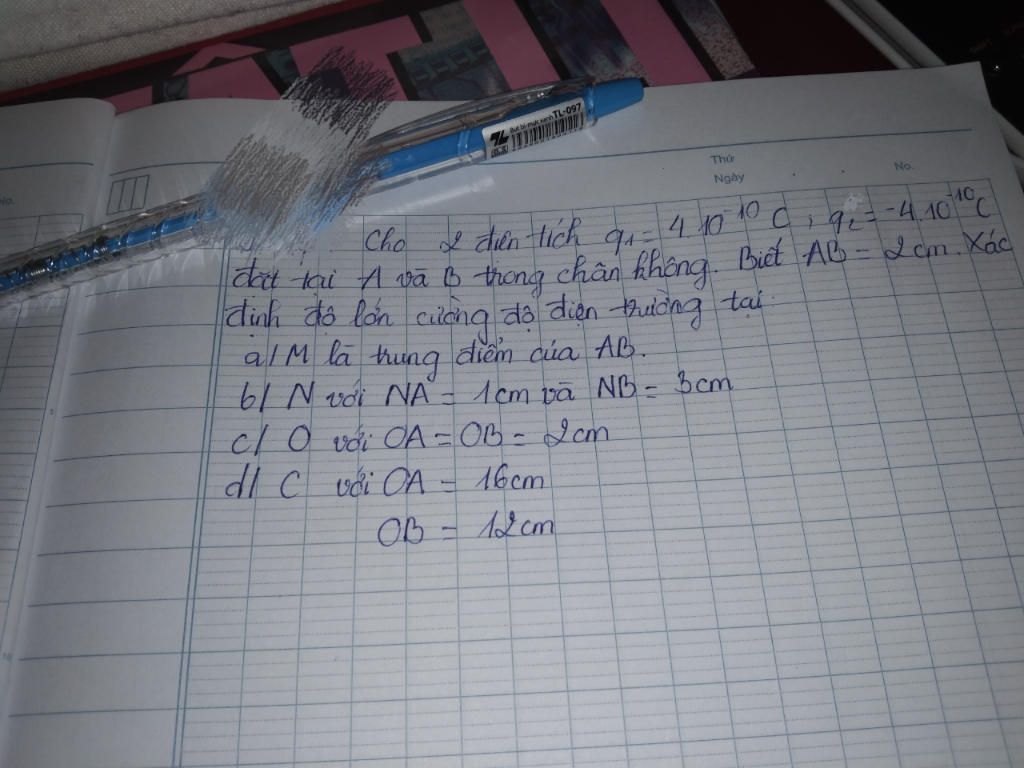 Bút bi mực xanh TL-097
TL
Thứ
Ngày
No.
No.
Cho 2 điện tích q1 = 4.10^-10 C, q2 = -4.10^-10 C
đặt tại A và B trong chân không. Biết AB = 2cm. Xác
định độ lớn cường độ điện trường tại:
a/ M là trung điểm của AB.
b/ N với NA = 1cm và NB = 3cm
c/ O với OA = OB = 2cm
d/ C với OA = 16cm
OB = 12cm